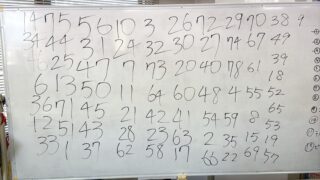 14 75 5 56 10 3 26 72 29 70 38 9
34 44 31 24 32 30 27 74 67 49
25 47 7 73 20 40 78 61 39
6 13 50 11 64 60 48 4 55 52 18
36 71 45 21 42 41 54 59 8 65
12 51 43 28 23 63 2 35 15 19 53
33 1 37 62 58 17 66 22 69 57